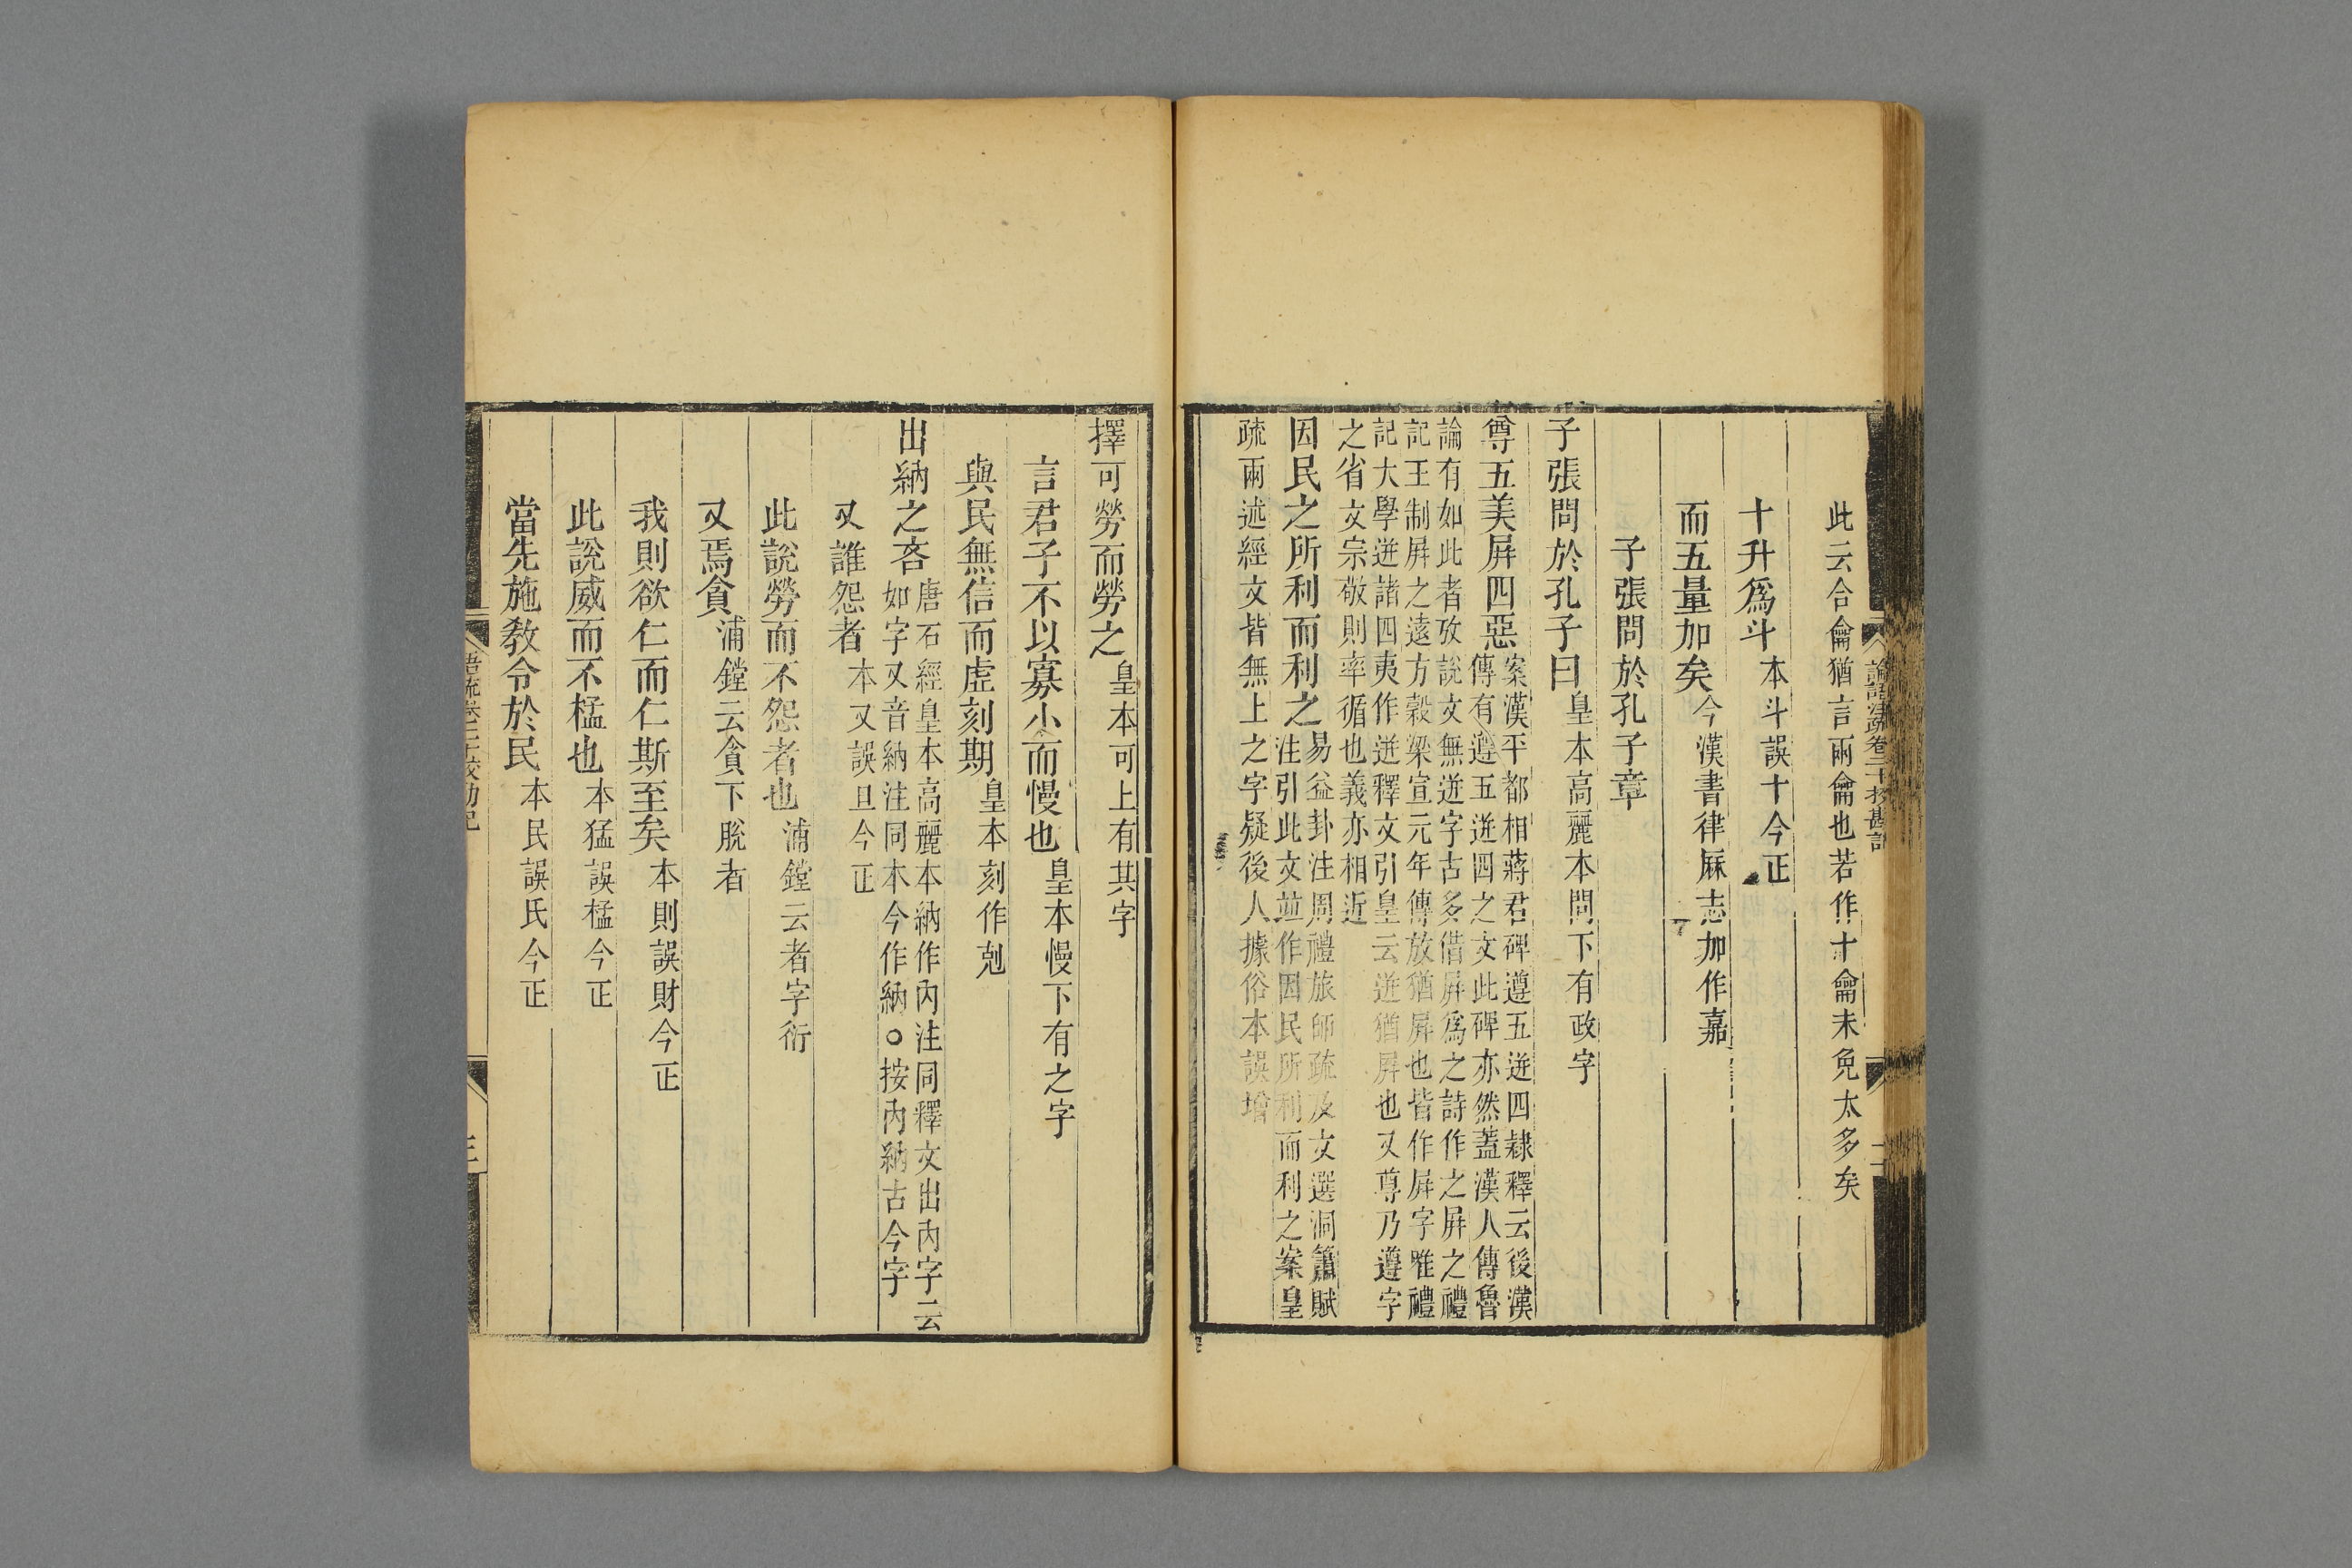 論語注疏卷二十挍勘記
二
此云合龠猶言兩龠也若作十龠未免太多矣
十升爲斗本斗誤十今正
而五量加矣今漢書律厤志加作嘉
子張問於孔子章
子張問於孔子曰皇本高麗本問下有政字
尊五美屏四惡案漢平都相蔣君碑遵五迸四隸釋云後漢
傳有遵五迸四之文此碑亦然蓋漢人傳魯
論有如此者攷說文無迸字古多借屏爲之詩作之屏之禮
記王制屏之遠方穀梁宣元年傳放猶屏也皆作屏字唯禮
記大學迸諸四夷作迸釋文引皇云迸猶屏也又尊乃遵字
之省文宗敬則率循也義亦相近
因民之所利而利之易益卦注周禮旅師疏及文選洞簫賦
注引此文並作因民所利而利之案皇
疏兩述經文皆無上之字疑後人據俗本誤增
擇可勞而勞之皇本可上有其字
言君子不以寡小而慢也皇本慢下有之字
與民無信而虛刻期皇本刻作剋
出納之吝唐石經皇本高麗本納作內注同釋文出內字云
如字又音納注同本今作納○按內納古今字
又誰怨者本又誤且今正
此說勞而不怨者也浦鏜云者字衍
又焉貪浦鏜云貪下脫者
我則欲仁而仁斯至矣本則誤財今正
此說威而不猛也本猛誤榏今正
當先施教令於民本民誤氏今正
語疏卷二十校勘記
三